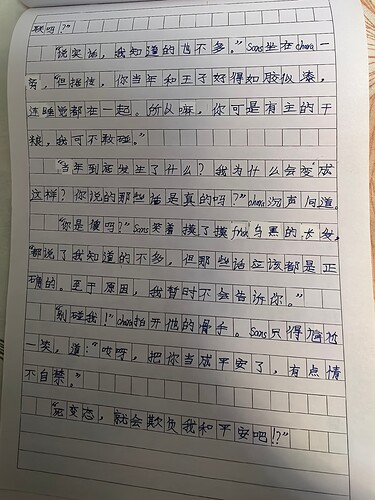 吗？"
"说实话，我知道的也不多。"Sans坐在chara一
旁，"但据传，你当年和王子好得如胶似漆，
连睡觉都在一起。所以嘛，你可是有主的干
粮，我可不敢碰。"
"当年到底发生了什么？我为什么会变成
这样？你说的那些话是真的吗？"chara沉声问道。
"你是傻吗？"Sans笑着摸了摸frisk乌黑的长发，
"都说了我知道的不多，但那些话应该都是正
确的。至于原因，我暂时不会告诉你。"
"别碰我！"chara拍开他的骨手。Sans只得尴尬
一笑，道："哎呀，把你当成平安了，有点情
不自禁。"
"死变态，就会欺负我和平安吧!?"